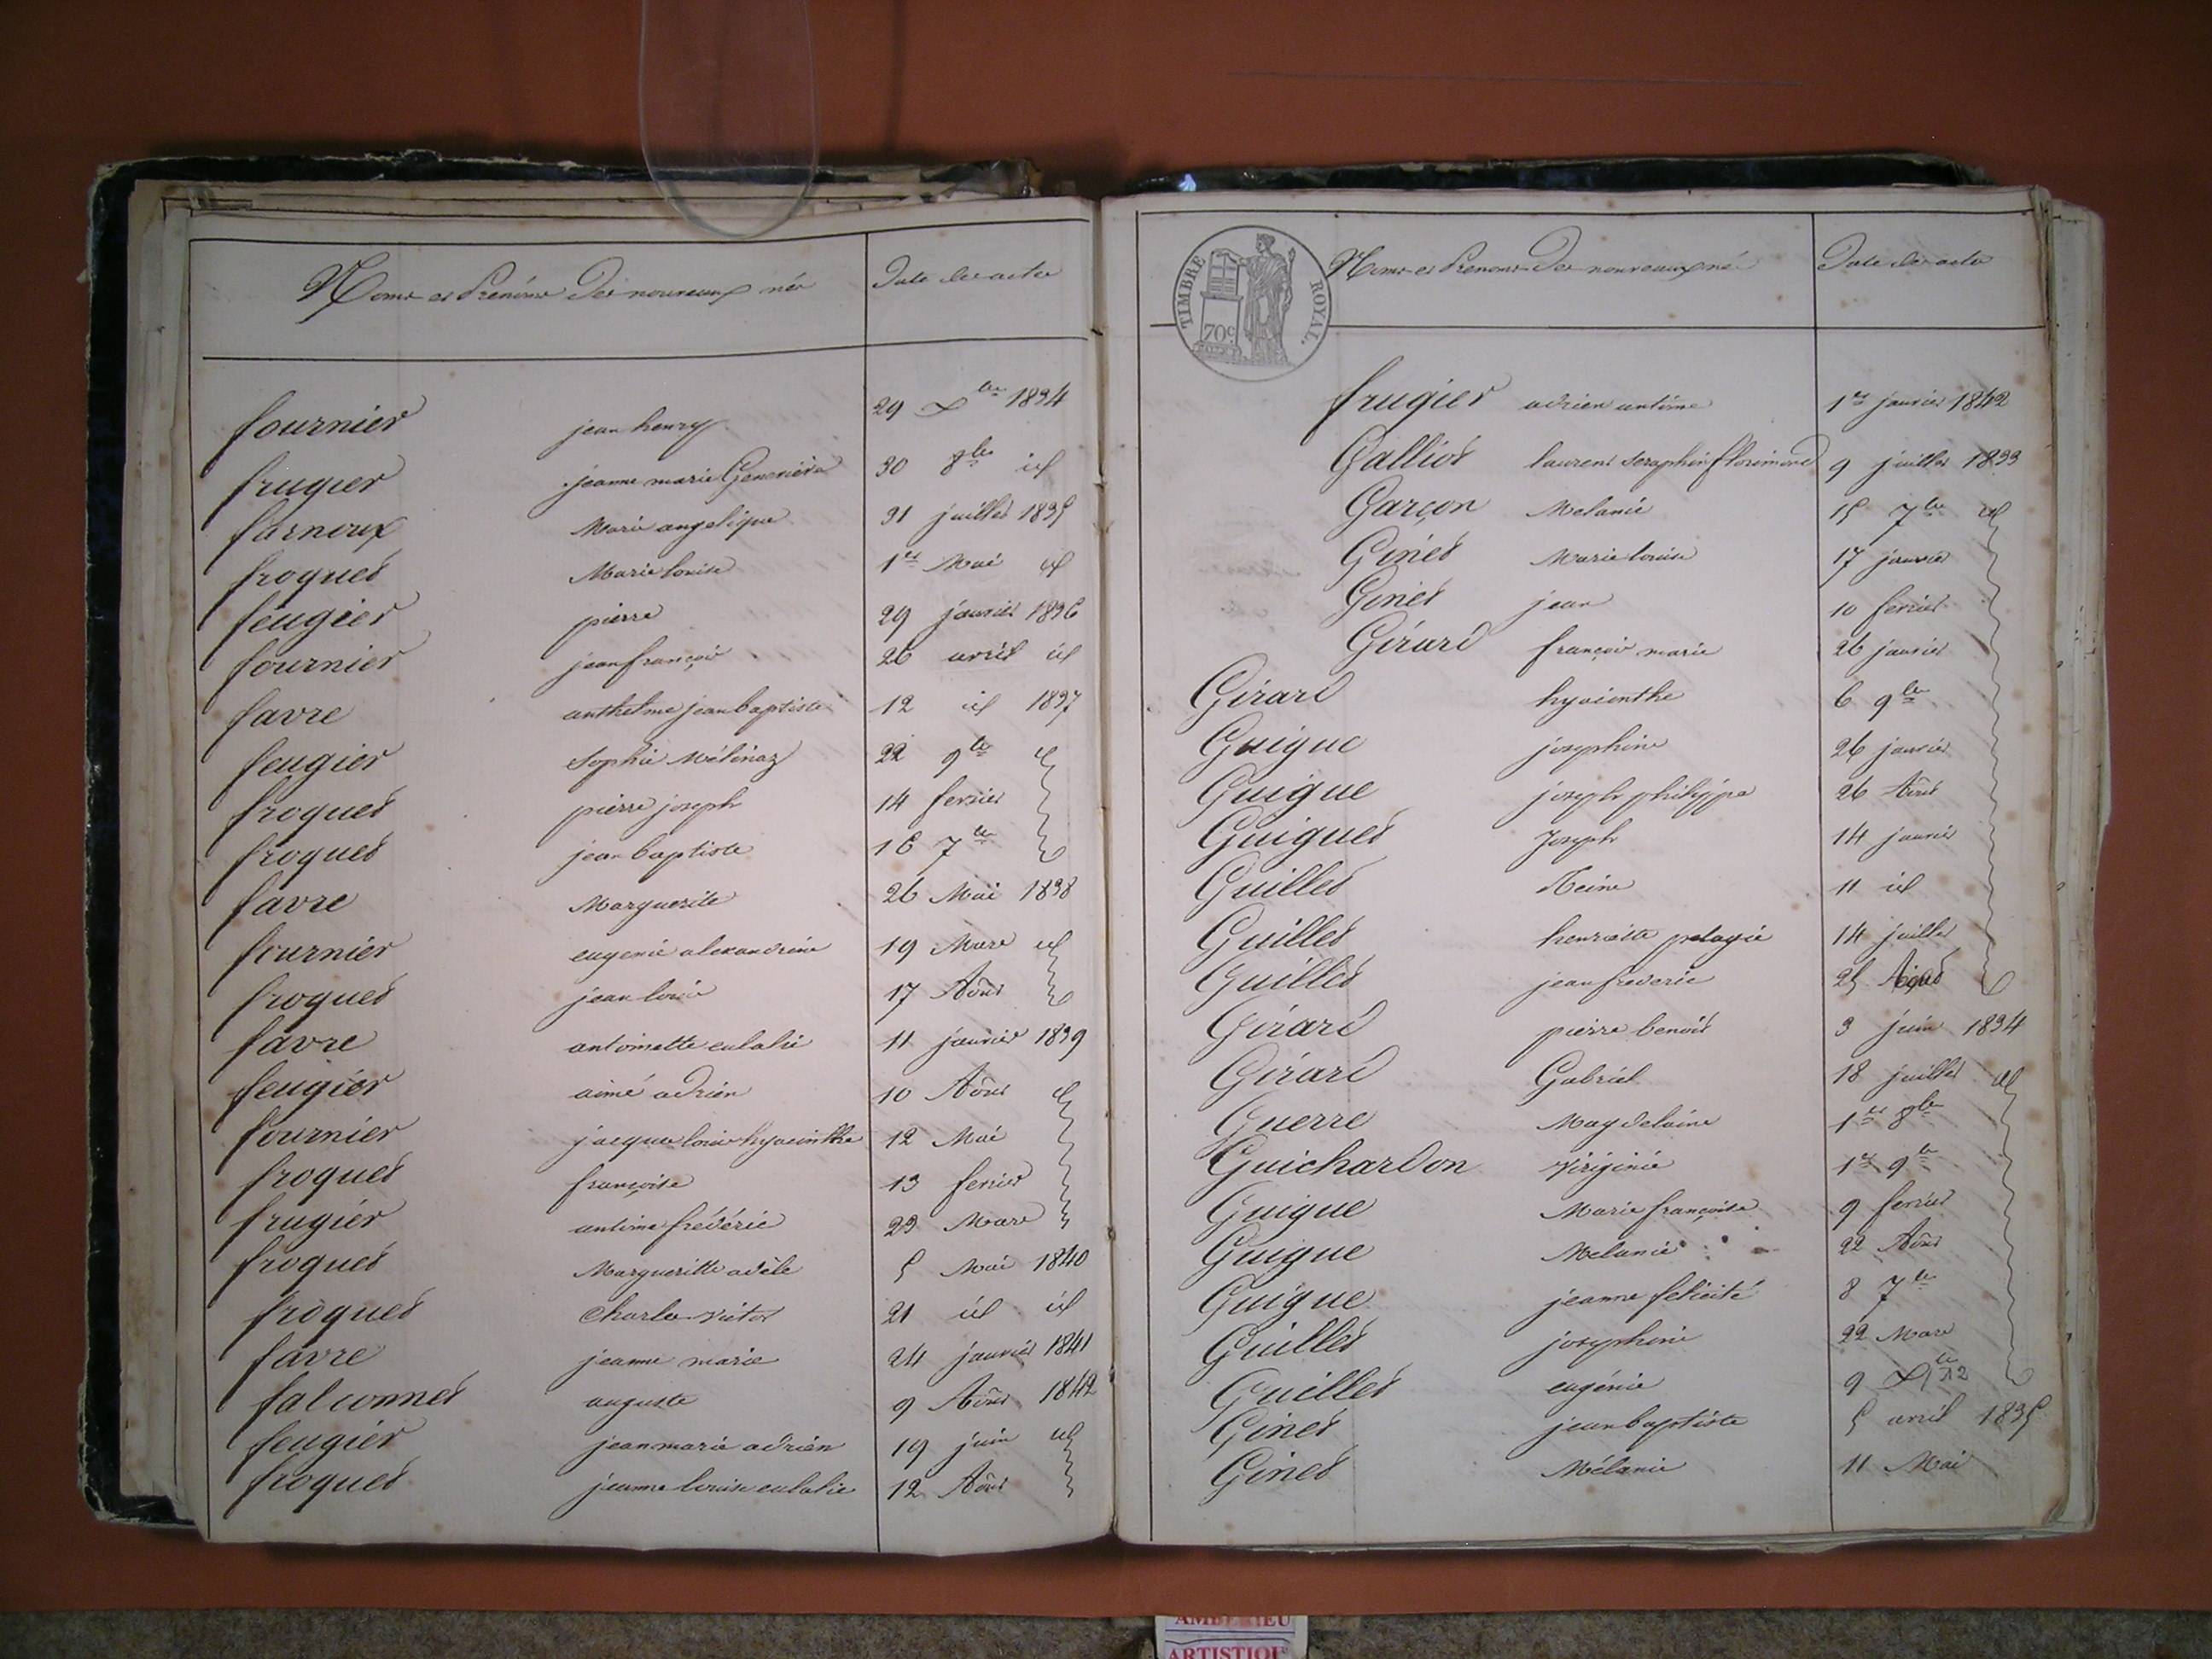 Noms et Prénoms Des nouveaux nés Date des actes
fournier jean henry 29 Xbre 1834
frugier jeanne marie Geneviève 30 8bre id
farnoux Marie angelique 31 juillet 1835
froquet Marie louise 1er Mai id
feugier pierre 29 janvier 1836
fournier jean françois 26 avril id
favre anthelme jean baptiste 12 id 1837
feugier Sophie Mélinaz 22 9bre id
froquet pierre joseph 14 fevrier
froquet jean baptiste 16 7bre
favre Marguerite 26 Mai 1838
fournier eugenie alexandrine 19 Mars id
froquet jean louis 17 Août
favre antoinette eulalie 11 janvier 1839
feugier aimé adrien 10 Août id
fournier jacques louis hyacinthe 12 Mai
froquet françoise 13 fevrier
frugier antime frédéric 23 Mars
froquet Margueritte adèle 5 Mai 1840
froquet Charles victor 21 id id
favre jeanne marie 24 janvier 1841
falconnet auguste 9 Août 1842
feugier jean marie adrien 19 juin id
froquet jeanne louise eulalie 12 Août
TIMBRE ROYAL.
70c
Noms et Prenoms Des nouveaux nés Date des actes
frugier adrien antime 1er janvier 1842
Galliot laurent Seraphin florimond 9 juillet 1833
Garçon Melanie 15 7bre id
Ginet Marie louise 17 janvier
Ginet jean 10 fevrier
Girard françois marie 26 janvier
Girard hyacinthe 6 9bre
Guigue josephine 26 janvier
Guigue joseph philippe 26 Août
Guiguet Joseph 14 janvier
Guillet Reine 11 id
Guillet henriette pelagie 14 juillet
Guillet jean frederic 25 Août
Girard pierre benoit 3 juin 1834
Girard Gabriel 18 juillet id
Guerre Magdelaine 1er 8bre
Guichardon virginie 1er 9bre
Guigue Marie françoise 9 fevrier
Guigue Melanie 22 Août
Guigue jeanne felicité 8 7bre
Guillet josephine 22 Mars
Guillet eugénie 9 Xbre
Ginet jean baptiste 5 avril 1835
Ginet Mélanie 11 Mai
ARTISTIQUE